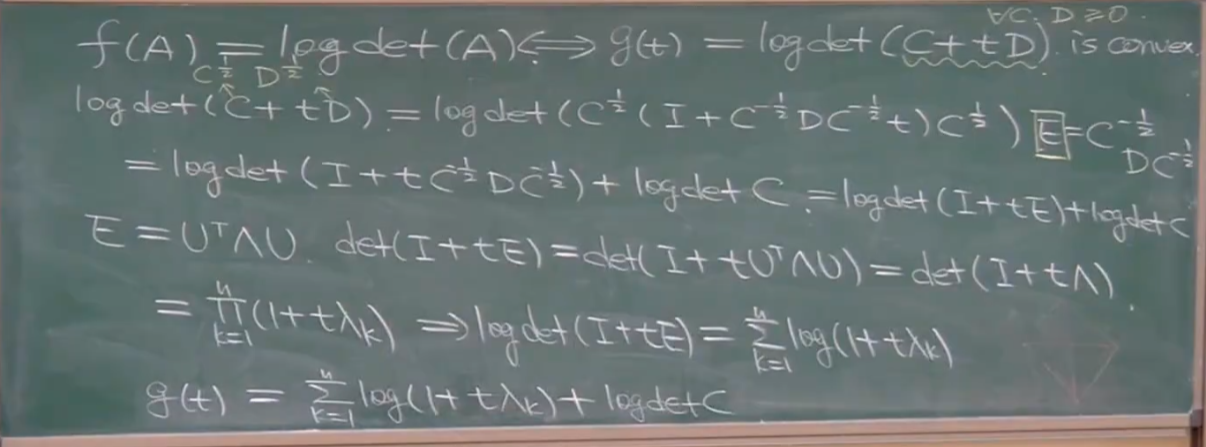 ∀C, D ≥ 0.
f(A) = log det(A) ⟺ g(t) = log det(C + tD) is convex.
C^{1/2} D^{1/2}
log det(C + tD) = log det(C^{1/2}(I + C^{-1/2}DC^{-1/2}t)C^{1/2}) E = C^{-1/2}
DC^{-1/2}
= log det(I + tC^{-1/2}DC^{-1/2}) + log det C = log det(I + tE) + log det C
E = U^TΛU. det(I + tE) = det(I + tU^TΛU) = det(I + tΛ)
= ∏_{k=1}^{n}(1 + tλ_k) ⇒ log det(I + tE) = ∑_{k=1}^{n} log(1 + tλ_k)
g(t) = ∑_{k=1}^{n} log(1 + tλ_k) + log det C